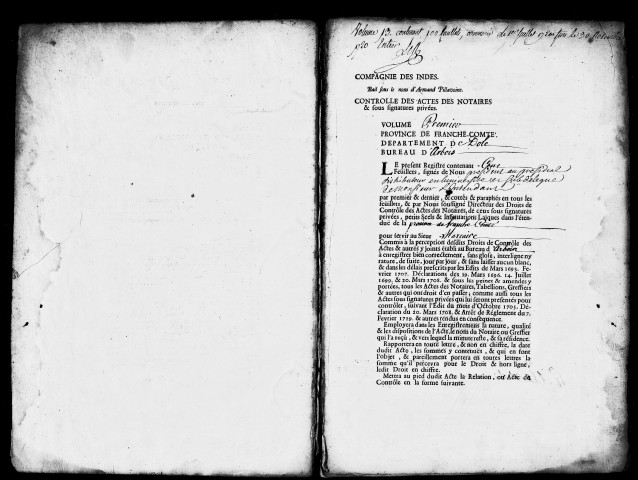 Volume 13. contenant 100 feuillets, commencé
COMPAGNIE DES INDES.
Bail sous le nom d'Armand Pillavoine.
CONTROLLE DES ACTES DES NOTAIRES
& sous signatures privées.
VOLUME Premier
PROVINCE DE FRANCHE-COMTÉ.
DEPARTEMENT De Dole
BUREAU D'Arbois
LE présent Registre contenant Cent
Feuillets, signés de Nous president au présidial
subdélégué
de Monsieur L'Intendant
par premier & dernier, & cottés & paraphés en tous les
feuillets, & par Nous soussigné Directeur des Droits de
Contrôle des Actes des Notaires, de ceux sous signatures
privées, petits Scels & Insinuations Laïques dans l'éten-
duë de la province de franche Comté
pour servir au Sieur Marcaire
Commis à la perception desdits Droits de Contrôle des
Actes & autres y joints établi au Bureau d'Arbois
à enregistrer bien correctement, sans glose, interligne ny
rature, de suite, jour par jour, & sans laisser aucun blanc,
& dans les délais prescrits par les Edits de Mars 1693. Fe-
vrier 1707. Déclarations des 19. Mars 1696. 14. Juillet
1699. & 20. Mars 1708. & sous les peines & amendes y
portées, tous les Actes des Notaires, Tabellions, Greffiers
& autres qui ont droit d'en passer; comme aussi tous les
Actes sous signatures privées qui lui seront presentés pour
contrôler, suivant l'Edit du mois d'Octobre 1705. Dé-
claration du 20. Mars 1708. & Arrêt de Réglement du 7.
Fevrier 1719. & autres rendus en consequence.
Employera dans les Enregistremens la nature, qualité
& les dépositions de l'Acte, le nom du Notaire ou Greffier
qui l'a reçû, & vers lequel la minute reste, & sa résidence.
Rapportera en toute lettre, & non en chiffre, la date
dudit Acte, les sommes y contenuës, & qui en font
l'objet, & pareillement portera en toutes lettres la
somme qu'il percevra pour le Droit & hors ligne,
ledit Droit en chiffre.
Mettra au pied dudit Acte la Relation, ou Acte de
Contrôle en la forme suivante.